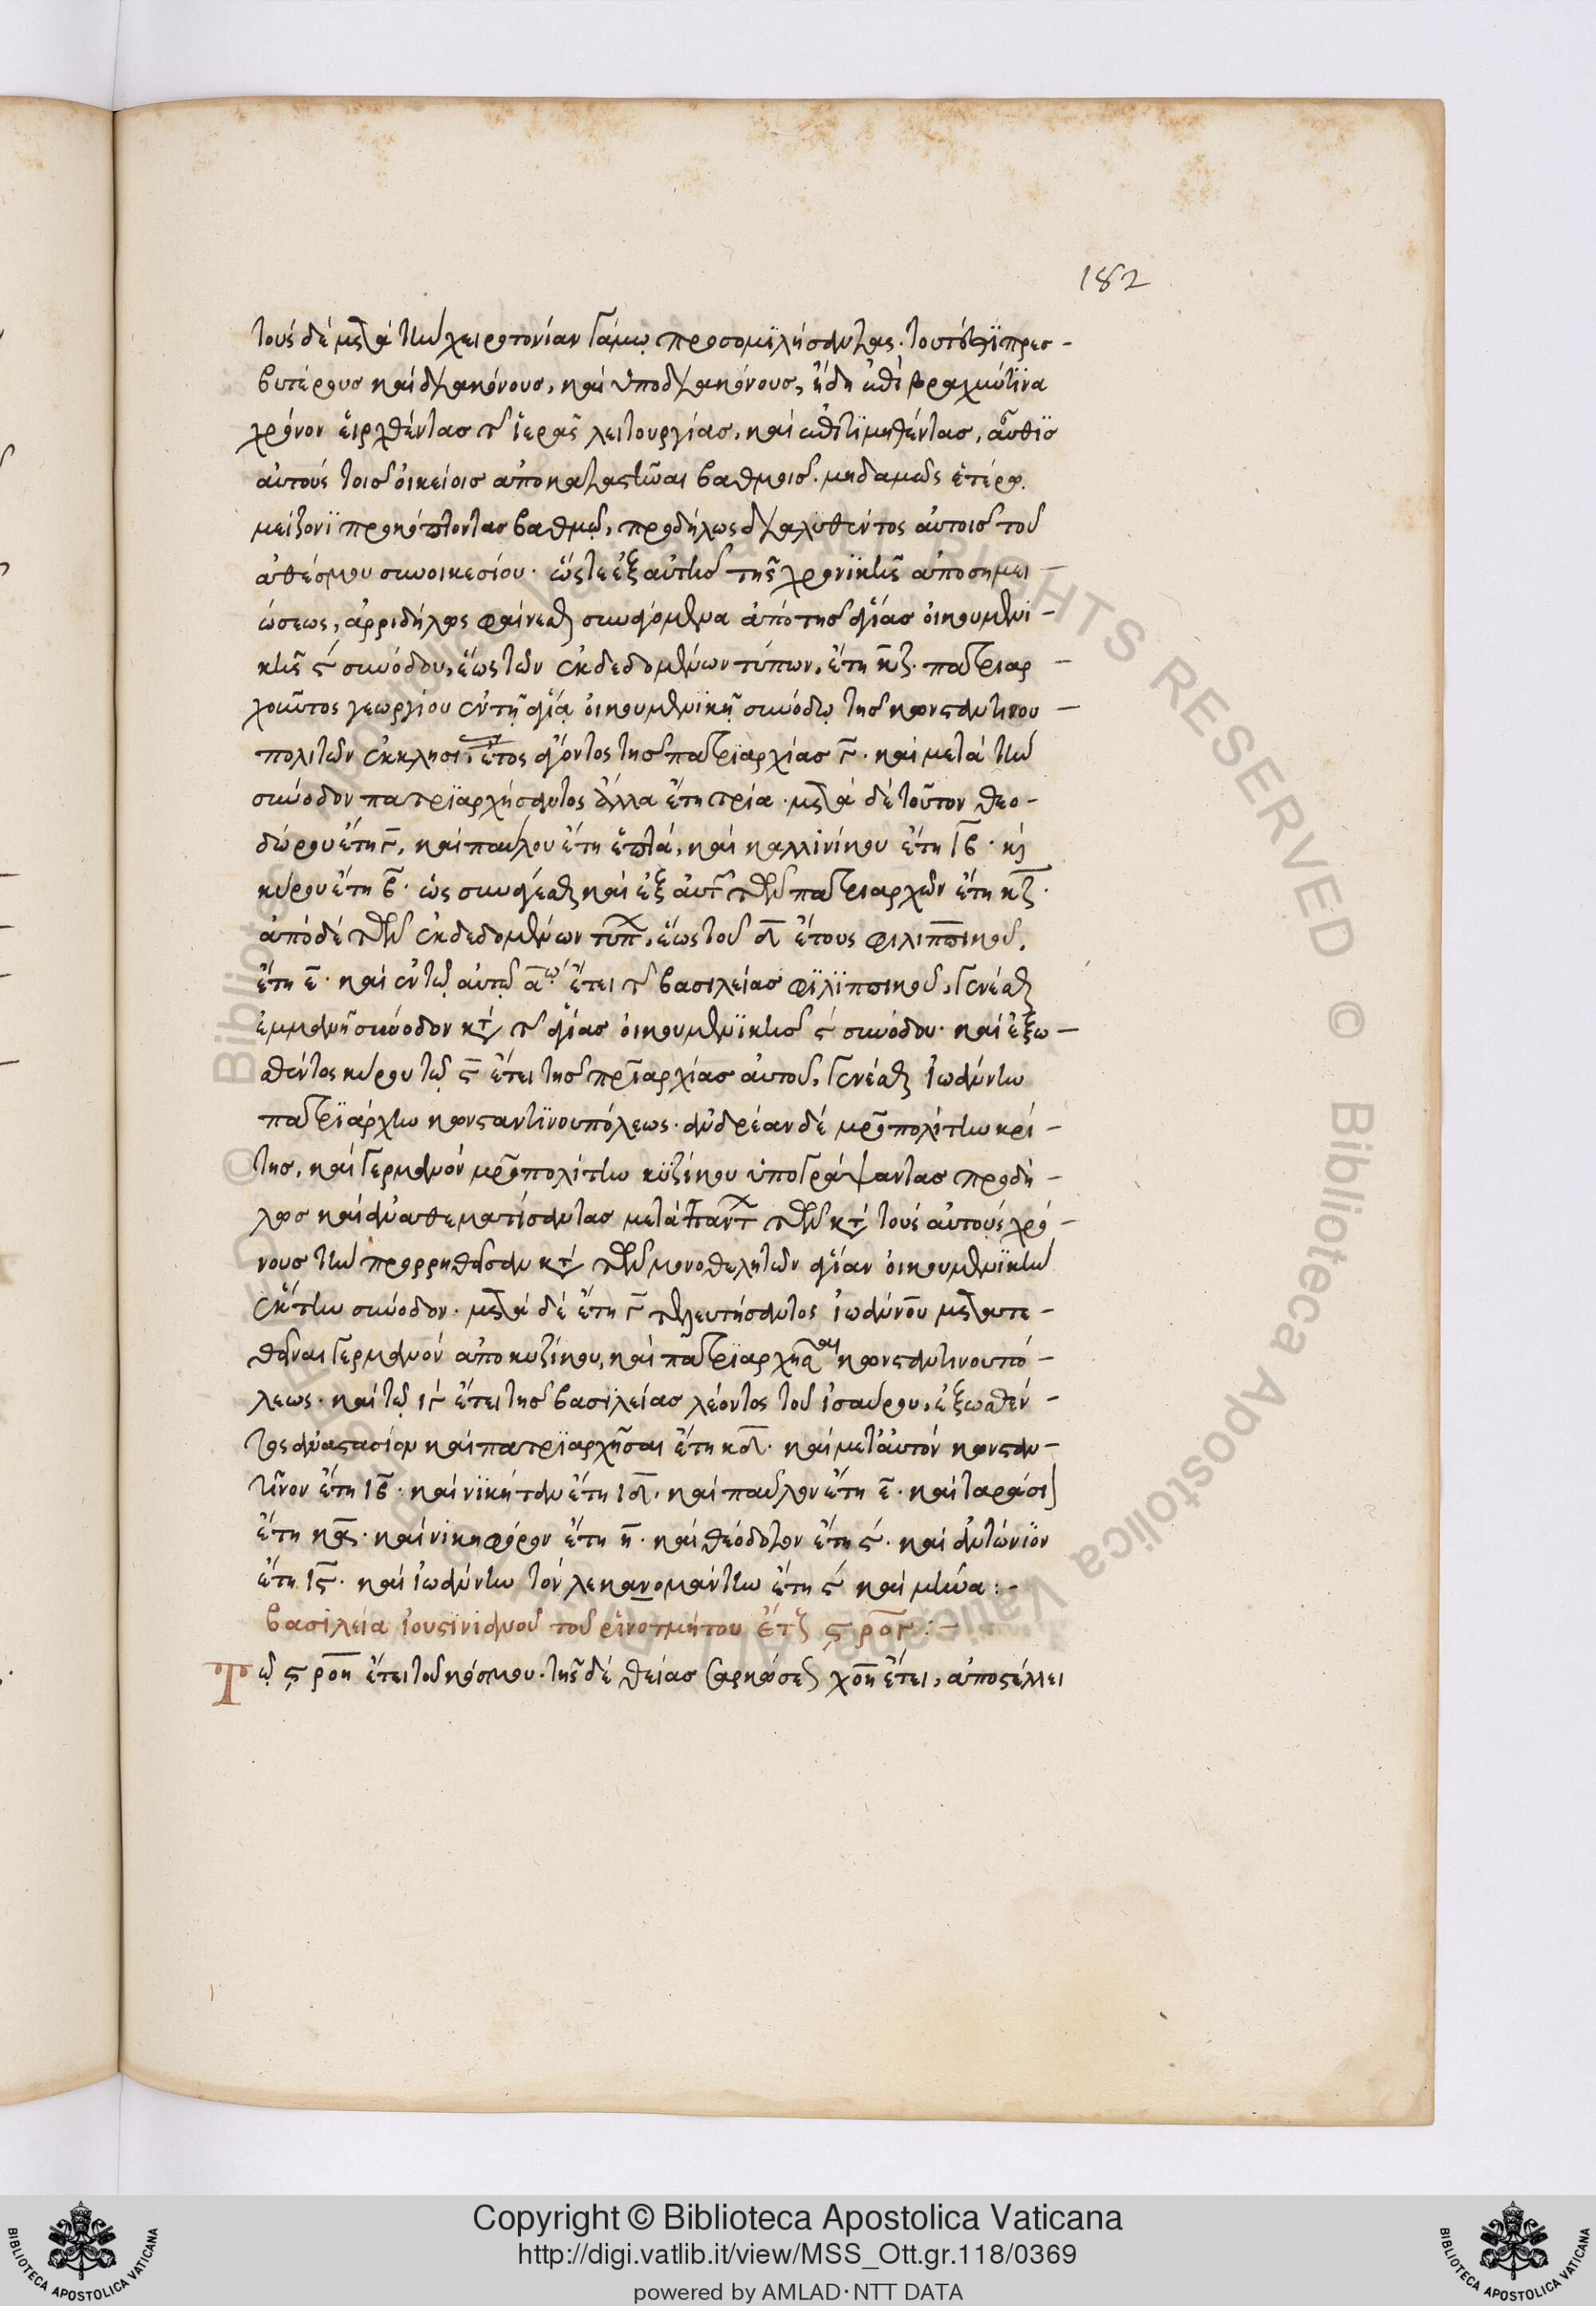 182
τοὺς δὲ μετὰ τὴν χειροτονίαν γάμω προσομϊλήσαντας. τουτέστϊ πρες-
βυτέρους καὶ διακόνους, καὶ ὑποδιακόνους, ἤδη ἐπὶ βραχύν τϊνα
χρόνον εἰρχθέντας τῆς ἱερᾶς λειτουργίας, καὶ ἐπϊτϊμηθέντας, αὖθϊς
αὐτοὺς τοῖς οἰκείοις ἀποκαταστῶσαι βαθμοῖς. μηδαμῶς ἑτέρω
μείζονϊ προκόπτοντας βαθμῷ, προδήλως διαλυθέντος αὐτοῖς τοῦ
ἀθέσμου συνοικεσίου. ὥστε ἐξ αὐτῆς τῆς χρονϊκῆς ἀποσημει-
ώσεως, ἀρριδήλως φαίνεσθαι συναγόμενα ἀπὸ τῆς ἁγίας οἰκουμενι-
κῆς ϛ συνόδου, ἕως τῶν ἐκδεδομένων τύπων, ἔτη κζ. πατριαρ-
χοῦντος γεωργίου ἐν τῇ ἁγίᾳ οἰκουμενϊκῇ συνόδῳ τῆς κωνσταντινου-
πολιτῶν ἐκκλησί. ἔτος ἄγοντος τῆς πατρϊαρχίας γ. καὶ μετὰ τὴν
σύνοδον πατρϊαρχήσαντος ἄλλα ἔτη τρία. μετὰ δὲ τοῦτον θεο-
δώρου ἔτη γ, καὶ παύλου ἔτη ἑπτά, καὶ καλλινίκου ἔτη ιβ. κὶ
κύρου ἔτη ϛ. ὡς συναγέσθαι καὶ ἐξ αὐτ τῶν πατριαρχῶν ἔτη κζ.
ἀπὸ δὲ τῶν ἐκδεδομένων τυπ, ἕως τοῦ α ἔτους φιλιππικοῦ,
ἔτη ε. καὶ ἐν τῷ αὐτῷ αω ἔτει τῆς βασιλείας φϊλϊππικοῦ, γενέσθαι
ἐμμανῆ σύνοδον κτ τῆς ἁγίας οἰκουμενϊκῆς ϛ συνόδου. καὶ ἐξω-
σθέντος κύρου τῷ ϛ ἔτει τῆς πριαρχίας αὐτοῦ, γενέσθαι ἰωάννην
πατρϊάρχην κωνσταντϊνουπόλεως. ἀνδρέαν δὲ μροπολίτην κρί-
της, καὶ γερμανὸν μροπολίτην κϋζίκου ὑπογράψαντας προδή-
λως καὶ ἀναθεματίσαντας μετὰ παντ τῶν κτ τοὺς αὐτοὺς χρό-
νους τὴν προρρηθεῖσαν κτ τῶν μονοθελητῶν ἁγίαν οἰκουμενϊκὴν
ἕκτην σύνοδον. μετὰ δὲ ἔτη γ τελευτήσαντος ἰωάννου μετατε-
θῆναι γερμανὸν ἀπὸ κυζίκου, καὶ πατρϊαρχῆσαι κωνσταντινουπό-
λεως. καὶ τῷ ιγ ἔτει τῆς βασιλείας λέοντος τοῦ ἰσαύρου, ἐξωσθέν-
τος ἀναστασίον καὶ πατρϊαρχῆσαι ἔτη κδ. καὶ μετ αὐτὸν κωνσταν-
τῖνον ἔτη ιβ. καὶ νϊκήταν ἔτη ιδ. καὶ παῦλον ἔτη ε. καὶ ταράσι
ἔτη κα. καὶ νικηφόρον ἔτη η. καὶ θεόδοτον ἔτη ϛ. καὶ ἀντώνϊον
ἔτη ιϛ. καὶ ἰωάννην τὸν λεκανομάντην ἔτη ϛ καὶ μῆνα:-
βασιλεία ἰουστινϊανοῦ τοῦ ῥϊνοτμήτου ἔτ ͵ϛ ρογ:-
Τῷ ͵ϛ ροη ἔτει τοῦ κόσμου. τῆς δὲ θείας σαρκώσε χοη ἔτει, ἀποστέλλει
Copyright © Biblioteca Apostolica Vaticana
http://digi.vatlib.it/view/MSS_Ott.gr.118/0369
powered by AMLAD·NTT DATA